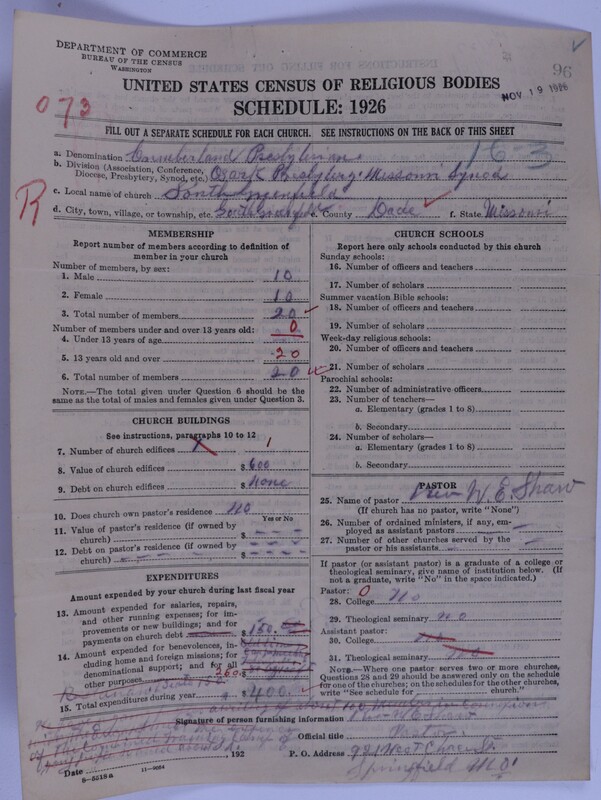 DEPARTMENT OF COMMERCE
BUREAU OF THE CENSUS
WASHINGTON
96
UNITED STATES CENSUS OF RELIGIOUS BODIES
NOV 19 1926
SCHEDULE: 1926
073
FILL OUT A SEPARATE SCHEDULE FOR EACH CHURCH. SEE INSTRUCTIONS ON THE BACK OF THIS SHEET
16-3
a. Denomination Cumberland Presbyterian
b. Division (Association, Conference, Diocese, Presbytery, Synod, etc.) Ozark Presbytery Missouri Synod
R
c. Local name of church South Greenfield
d. City, town, village, or township, etc. South Greenfield e. County Dade f. State Missouri
MEMBERSHIP
Report number of members according to definition of member in your church
Number of members, by sex:
1. Male 10
2. Female 10
3. Total number of members 20
Number of members under and over 13 years old:
4. Under 13 years of age 0
5. 13 years old and over 20
6. Total number of members 20
NOTE.—The total given under Question 6 should be the same as the total of males and females given under Question 3.
CHURCH BUILDINGS
See instructions, paragraphs 10 to 12
7. Number of church edifices 1
8. Value of church edifices $600
9. Debt on church edifices $None
10. Does church own pastor's residence? No
Yes or No
11. Value of pastor's residence (if owned by church) $ - - -
12. Debt on pastor's residence (if owned by church) $ - - -
EXPENDITURES
Amount expended by church during last fiscal year
13. Amount expended for salaries, repairs, and other running expenses; for improvements or new buildings; and for payments on church debt $150.
14. Amount expended for benevolences, including home and foreign missions; for denominational support; and for all other purposes $
250
15. Total expenditures during year $400
CHURCH SCHOOLS
Report here only schools conducted by this church
Sunday schools:
16. Number of officers and teachers
17. Number of scholars
Summer vacation Bible schools:
18. Number of officers and teachers
19. Number of scholars
Week-day religious schools:
20. Number of officers and teachers
21. Number of scholars
Parochial schools:
22. Number of administrative officers
23. Number of teachers—
a. Elementary (grades 1 to 8)
b. Secondary
24. Number of scholars—
a. Elementary (grades 1 to 8)
b. Secondary
PASTOR
25. Name of pastor Rev W. E. Shaw
(If church has no pastor, write "None")
26. Number of ordained ministers, if any, employed as assistant pastors
27. Number of other churches served by the pastor or his assistants
If pastor (or assistant pastor) is a graduate of a college or theological seminary, give name of institution below. (If not a graduate, write "No" in the space indicated.)
Pastor: 0
28. College No
29. Theological seminary No
Assistant pastor:
30. College No
31. Theological seminary No
NOTE.—Where one pastor serves two or more churches, Questions 28 and 29 should be answered only on the schedule for one of the churches; on the schedules for the other churches, write "See schedule for church."
Signature of person furnishing information Rev W E Shaw
Official title Pastor
Date 192
P. O. Address 981 West
Springfield MO.
8-5218a 11-9084